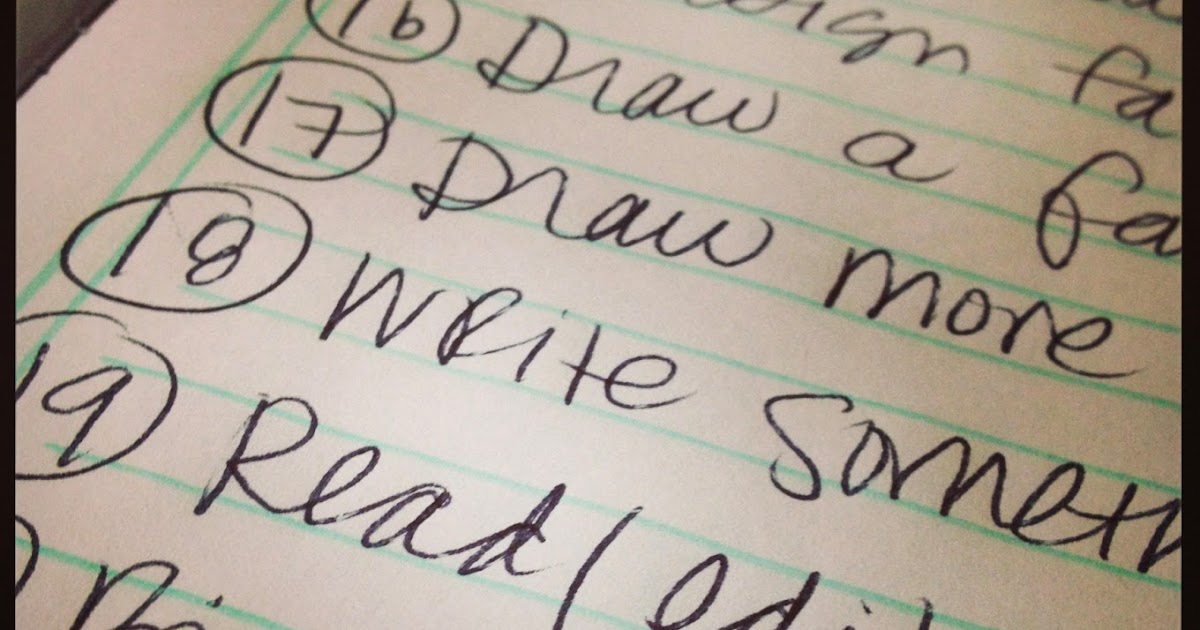 16 Draw a fa
17 Draw more
18 Write someth
19 Read/edit